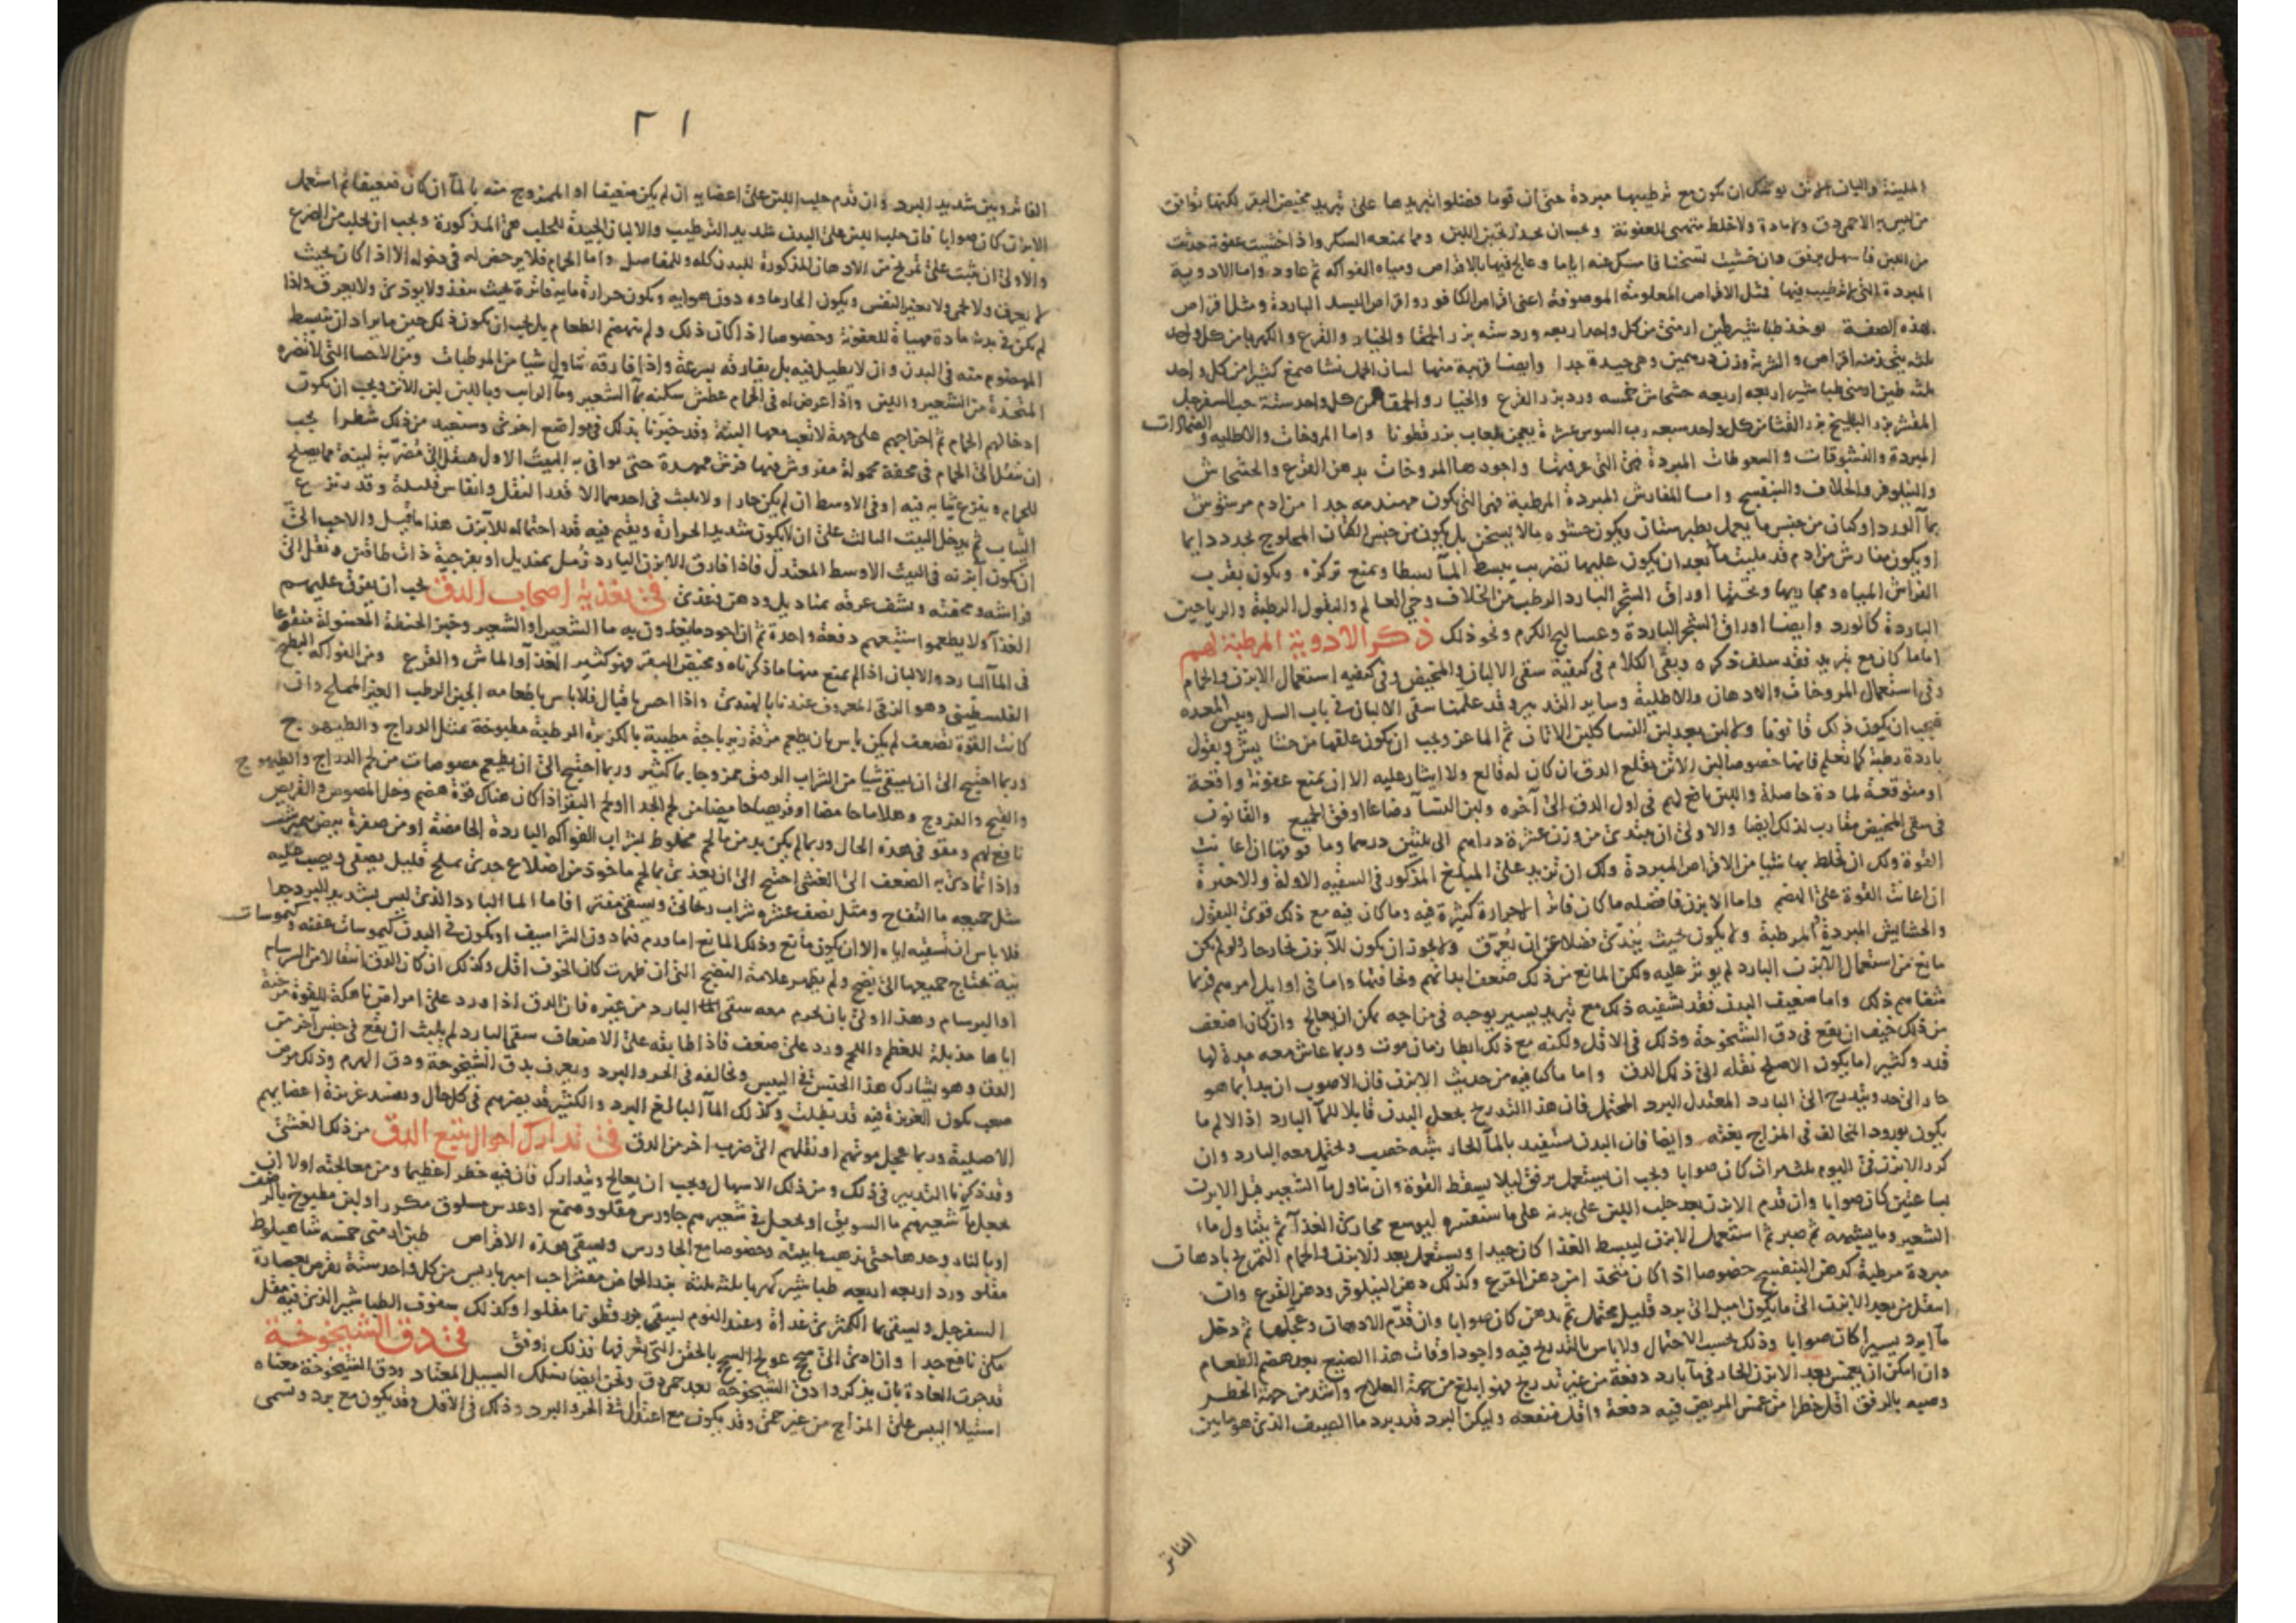 الملينة والبان الاتن يوشك ان يكون مع ترطيبها مبردة حتى ان قوما فضلوا تبريدها على تبريد مخيض البقر لكنها توافق
من ليس به الا حمى دق ولا مادة ولا خلط متهيى للعفونة ويجب ان يحذر تجبن اللبن ومما يمنعه السكر واذا خشيت عفونة حدثت
من اللبن فاسهل برفق وان خشيت تسخنا فامسك عنه اياما وعالج فيها بالاقراص ومياه الفواكه ثم عاود واما الادوية
المبردة التى لا ترطيب فيها فمثل الاقراص المعلومة الموصوفة اعنى اقراص الكافور واقراص البسد الباردة ومثل اقراص
بهذه الصفة يوخذ طباشير طين ارمنى من كل واحد اربعه ورد سته بزر الحمقا والخيار والقرع والكهربا من كل واحد
ثلثه يتخذ منه اقراص والشربة وزن درهمين وهى جيدة جدا وايضا قريبة منها لسان الحمل نشا صمغ كثيرا من كل واحد
ثلثه طين ارمنى طباشير اربعه اربعه خشخاش خمسه ورد بزر القرع والخيار والحمقا من كل واحد ستة حب السفرجل
المقشر بزر البطيخ بزر القثا من كل واحد سبعه رب السوس عشرة يعجن بلعاب بزر قطونا واما المروخات والاطليه والضمادات
المبردة والنشوقات والسعوطات المبردة فهى التى عرفتها واجودها المروخات بدهن القرع والخشخاش
والنيلوفر والخلاف والبنفسج واما المفارش المبردة المرطبة فهى التى يكون مهندمه جدا من ادم مرشوش
بما الورد او كتان من جنس ما يعمل بطبرستان ويكون حشوه مالا يسخن بل يكون من جنس الكتان المحلوج يجدد دايما
او يكون مفارش من ادم قد مليت ما بعد ان يكون عليها تضريب يبسط الما بسطا ويمنع تركزه ويكون بقرب
الفراش المياه ومجاريها وتحتها اوراق الشجر البارد الرطب من الخلاف وحى العالم والبقول الرطبة والرياحين
الباردة كالورد وايضا اوراق الشجر الباردة وعساليج الكرم ونحو ذلك ذكر الادوية المرطبة لهم
اما ما كان مع تبريد فقد سلف ذكره وبقى الكلام فى كيفية سقى الالبان والمخيض وفى كيفيه استعمال الابزن والحمام
وفى استعمال المروخات والادهان والاطلية وساير التدبير وقد علمتنا سقى الالبان فى باب السل ويبس المعده
فيجب ان يكون ذلك قانونا ولا لبن بعد لبن النسا كلبن الاتان ثم الماعز ويجب ان يكون علفها من حشايش وبقول
باردة رطبة كما تعلم فانها خصوصا لبن الاتن يقلع الدق ان كان له قالع ولا ايثار عليه الا ان يمنع عفونة واقعة
او متوقعة لمادة حاصلة واللبن نافع لهم فى اول الدق الى آخره ولبن النسآ رضاعا اوفق الجميع والقانون
فى سقى المخيض مقارب لذلك ايضا والاولى ان يبتدئ من وزن عشرة دراهم الى ثلثين درهما وما فوقها ان اعانت
القوة ولك ان تخلط بها شيا من الاقراص المبردة ولك ان تزيد على المبلغ المذكور فى السقيه الاولة والاخيرة
ان اعانت القوة على الهضم واما الابزن فافضله ما كان فاترا لا حرارة كثيرة فيه وما كان فيه مع ذلك قوى البقول
والحشايش المبردة المرطبة ولا يكون بحيث يندى فضلا عن ان يعرق ولا يجوز ان يكون للآبزن بخار حار ولو لم يكن
مانع من استعمال الآبزن البارد لم يوثر عليه ولكن المانع من ذلك ضعف ابدانهم ونحافتها واما فى اوايل امرهم فربما
شفاهم ذلك واما ضعيف البدن فقد يشفيه ذلك مع تبريد يسير يوجبه فى مزاجه يمكن ان يعالج وان كان اضعف
من ذلك خيف ان يقع فى دق الشيخوخة وذلك فى الاقل ولكنه مع ذلك ابطا زمان موت وربما عاش معه مدة لها
قدد وكثيرا ما يكون الاصلح نقله الى ذلك الدق واما ما كنا فيه من حديث الابزن فان الاصوب ان يبدا بما هو
حار الى حد ويتدرج الى البارد المعتدل البرد المحتمل فان هذا التدريج يجعل البدن قابلا للمآ البارد اذ الالم ما
يكون بورود المخالف فى المزاج بغتة وايضا فان البدن يستفيد بالمآ الحار شبه خصب ويحتمل معه البارد وان
كرر الابزن فى اليوم ثلث مرات كان صوابا ويجب ان يستعمل برفق ليلا يسقط القوة وان تناول مآ الشعير قبل الابزن
بساعتين كان صوابا وان قدم الابزن بعد حلب اللبن على بدنه على ما سنفسره ليوسع مجارى الغذآ ثم يتناول ماء
الشعير وما يشبهه ثم صبر ثم استعمل الابزن ليبسط الغذا كان جيدا ويستعمل بعد الابزن والحمام التمريخ بادهان
مبردة مرطبة كدهن البنفسج خصوصا اذا كان متخذا من دهن القرع وكذلك دهن النيلوفر ودهن القرع وان
انتقل من بعد الابزن الى ما يكون اميل الى برد قليل محتمل ثم تدهن كان صوابا وان قدم الادهان وعجلها ثم دخل
مآ ابرد يسيرا كان صوابا وذلك بحسب الاحتمال ولا باس بالتدريج فيه واجود اوقات هذا الصنيع بعد هضم الطعام
وان امكن ان يغمس بعد الابزن الحار فى مآ بارد دفعة من غير تدريج فهو ابلغ من جهة العلاج واشد من جهة الخطر
وصبه بالرفق اقل خطرا من غمس المريض فيه دفعة واقل منفعه وليكن البرد قدر برد ما الصيف الذى هو ما بين
الفاتر
٢١
الفاتر وبين شديد البرد وان قدم حلب اللبن على اعضايه ان لم يكن ضعيفا او الممزوج منه بالمآ ان كان ضعيفا ثم استعمل
الابزن كان صوابا فان حلب اللبن على البدن شديد الترطيب والالبان الجيدة للحلب هى المذكورة ويجب ان يحلب من الضرع
والاولى ان يثبت على تمريخ من الادهان المذكورة للبدن كله وللمفاصل واما الحمام فلا يرخص له فى دخوله الا اذا كان بحيث
لا يعرق ولا يحمى ولا يغير النفس ويكون الحار ماده دون هوايه ويكون حرارة مايه فاترة بحيث ينفذ ولا يوذى ولا يعرق واذا
لم يكن فى بدنه مادة مهياة للعفونة وخصوصا اذا كان ذلك ولم ينهضم الطعام بل يجب ان يكون ذلك حين ما يراد ان ينبسط
المهضوم منه فى البدن وان لا يطيل فيه بل يفارقه بسرعة واذا فارقه تناول شيا من المرطبات ومن الاحسا التى لا تضره
المتخذة من الشعير واللبن واذا عرض له فى الحمام عطش سكنه بمآ الشعير ومآ الرايب وباللبن لبن الاتن ويجب ان يكون
ادخالهم الحمام ثم اخراجهم على جهة لا تعب معها البتة وقد خبرنا بذلك فى مواضع اخرى وسنعيد من ذلك شطرا يجب
ان ينقل الى الحمام فى محفة محمولة مفروش فيها فرش ممهدة حتى يوافى به البيت الاول فينقل الى مضربة لينة مما يصلح
للحمام وينزع ثيابه فيه او فى الاوسط ان لم يكن حارا ولا يلبث فى احدهما الا قدر النقل وانفاس قليلة وقدر نزع
الثياب ثم يدخل البيت الثالث على ان لا يكون شديد الحرارة ويقيم فيه قدر احتماله للآبزن هذا ما قيل والاحب الى
ان يكون آبزنه فى البيت الاوسط المعتدل فاذا فارق الابزن البارد زمل بمنديل او بفرجية ذات طاقين ونقل الى
فراشه ومحفته ونشف عرقه بمناديل ودهن وغذى فى تغذية اصحاب الدق يجب ان يفرق عليهم
الغذآ ولا يطعموا شبعهم دفعة واحدة ثم ان اجود ما يغذون به ما الشعير او الشعير وخبز الحنطة المغسولة منقوعا
فى المآ البارد والالبان اذا لم يمنع منها ما ذكرناه ومخيض البقر فهو كثير الغذآ والماش والقرع ومن الفواكه البطيخ
الفلسطينى وهو الرقى المعروف عندنا بالهندى واذا احس باقبال فلا باس باطعامه الجبن الرطب الغير المملح وان
كانت القوة تضعف لم يكن باس بان يطعم مرقة زيرباجة مطيبة بالكزبرة الرطبة مطبوخة بمثل الدراج والطيهوج
وربما احتيج الى ان يسقى شيا من الشراب الرقيق ممزوجا بما كثير وربما احتيج الى ان يطعم مصوصات من لحم الدراج والطيهوج
والقبج والفروج وهلاما حامضا او قريصا حامضا من لحم الجدا او لحم البقر اذا كان هناك قوة هضم وخل المصوص والقريص
نافع لهم ومقو فى هذه الحال وربما لم يكن بد من مآ لحم مخلوط بشراب الفواكه الباردة الحامضة او من صفرة بيض نيمرشت
واذا تادى به الضعف الى الغشى احتيج الى ان يغذى بما لحم ماخوذ من اضلاع جدى بملح قليل يصفى ويصب عليه
مثل جميعه ما التفاح ومثل نصف عشره شراب ريحانى ويسقى مفترا فاما الما البارد الذى ليس بشديد البرد جدا
فلا باس ان نسقيه اياه الا ان يكون مانع وذلك المانع اما ورم فيما دون الشراسيف او يكون فى البدن كيموسات عفنه وكيموسات
نيه تحتاج جميعها الى نضج ولم يظهر علامة النضج التى ان ظهرت كان الخوف اقل وكذلك ان كان الدق انتقالا من السرسام
او البرسام وهذا اولى بان يحرم معه سقى الما البارد من غيره فان الدق اذا ورد على امراض ناهكة للقوة مرخية
اياها مذبلة للعظم واللحم ورد على ضعف فاذا طابقه على الاضعاف سقى البارد لم يلبث ان يقع فى جنس آخر من
الدق وهو يشارك هذا الجنس فى اليبس ويخالفه فى الحر والبرد ويعرف بدق الشيخوخة ودق الهرم وذلك مرض
صعب يكون الغريزة فيه قد بطلت وكذلك المآ البالغ البرد والكثير قد يضرهم فى كل حال ويفسد غريزة اعضايهم
الاصلية وربما عجل موتهم او نقلهم الى ضرب اخر من الدق فى تدارك احوال يتبع الدق من ذلك الغشى
وقد ذكرنا التدبير فى ذلك ومن ذلك الاسهال ويجب ان يعالج ويتدارك فان فيه خطرا عظيما ومن معالجته اولا ان
يجعل مآ شعيرهم ما السويق او يجعل فى شعيرهم جاورس مقلو وصمغ او عدس مسلوق مكررا ولبن مطبوخ بالرضف
او بالنار وحدها حتى يذهب مايته وخصوصا مع الجاورس ويسقى هذه الاقراص طين ارمنى خمسه شاهبلوط
مقلو ورد اربعه اربعه طباشير كهربا ثلثه ثلثة بزر الحماض مقشر احب اميرباريس من كل واحد ستة يقرص بعصارة
السفرجل ويسقى بما الكمثرى غداة وعند النوم يسقى بزر قطونا مقلوا وكذلك سفوف الطباشير الذى فيه مقل
مكى نافع جدا وان ادى الى سحج عولج السحج بالحقن التى تعرفها فذلك اوفق فى دق الشيخوخة
قد جرت العادة بان يذكروا دق الشيخوخة بعد حمى دق ونحن ايضا نسلك السبيل المعتاد ودق الشيخوخة معناه
استيلا اليبس على المزاج من غير حمى وقد يكون مع اعتدال فى الحر والبرد وذلك فى الاقل وقد يكون مع برد وتسمى